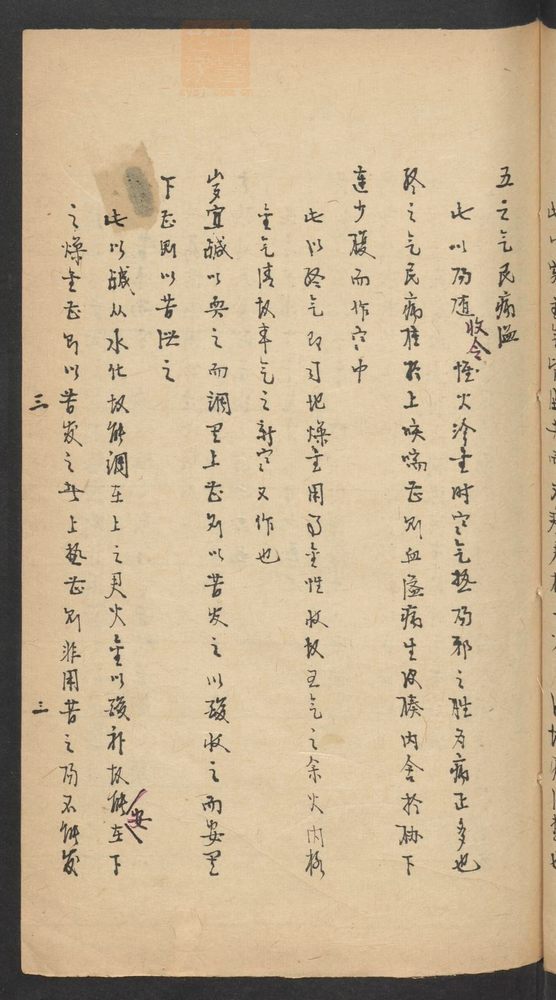 五之气民病温
此以陽隨收令惟火冷金时寒气热陽邪之胜为病正多也
终之气民病肿於上咳喘甚则血溢病生皮腠内舍於胁下
连少腹而作寒中
此以终气即司地燥金用事金性收故五气之余火内格
金气清故本气之新寒又作也
岁宜鹹以耎之而調里上甚则以苦发之以酸收之而安里
下甚则以苦泄之
此以鹹从水化故能調在上之君火金以酸补故能安在下
之燥金甚则以苦发之此上热甚则非用苦之陽不能发
三
三